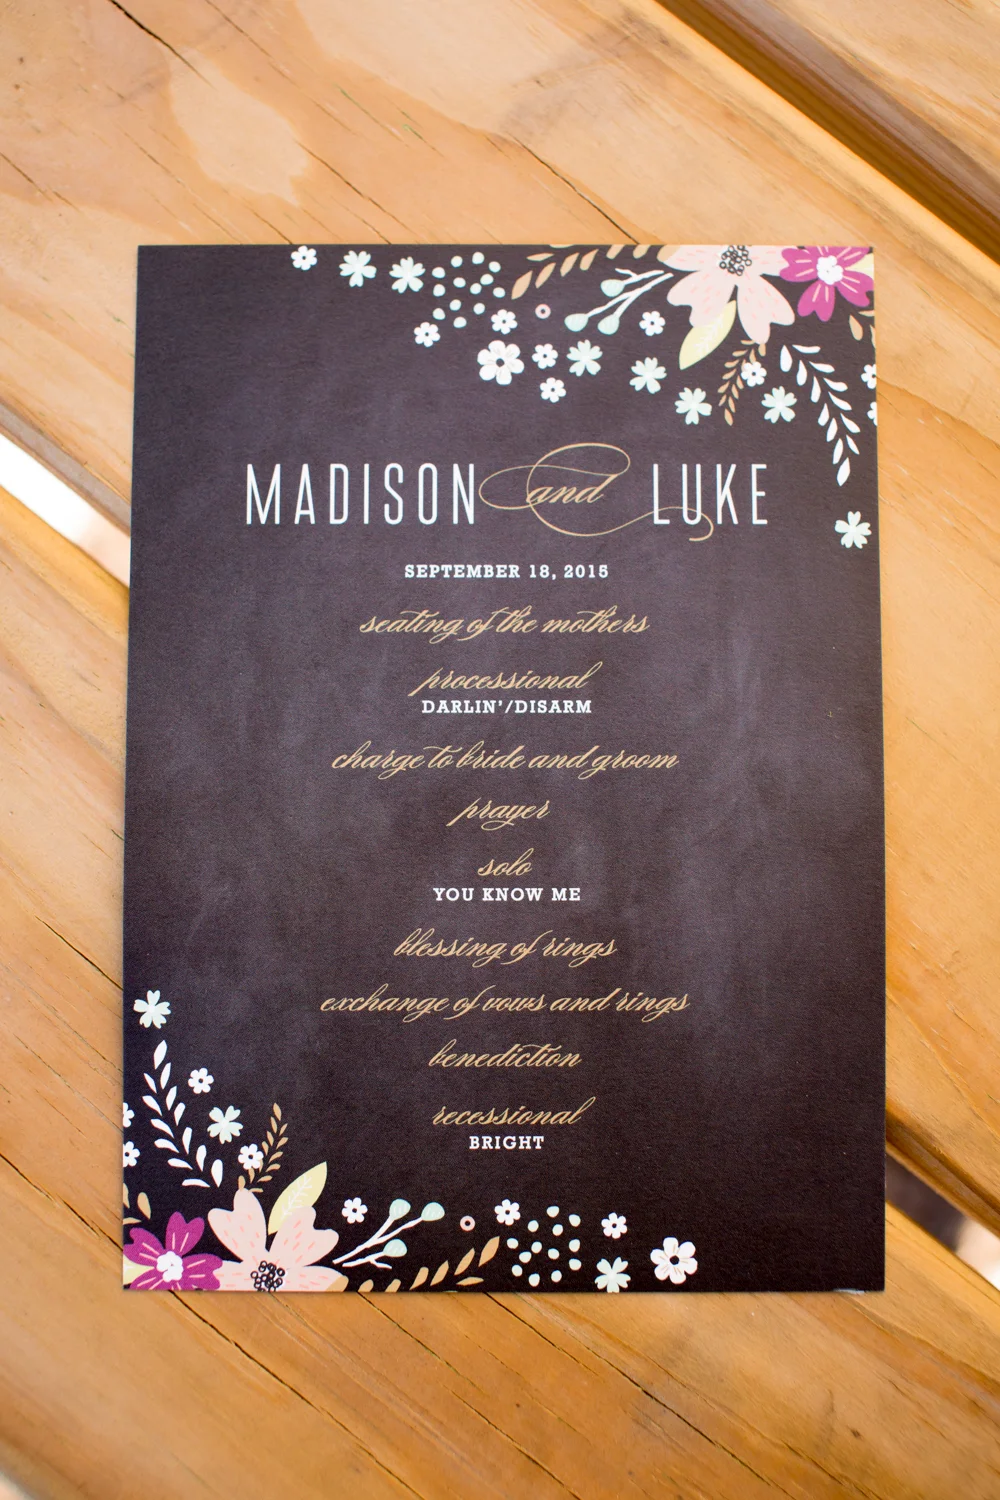 MADISON and LUKE
SEPTEMBER 18, 2015
seating of the mothers
processional
DARLIN'/DISARM
charge to bride and groom
prayer
solo
YOU KNOW ME
blessing of rings
exchange of vows and rings
benediction
recessional
BRIGHT